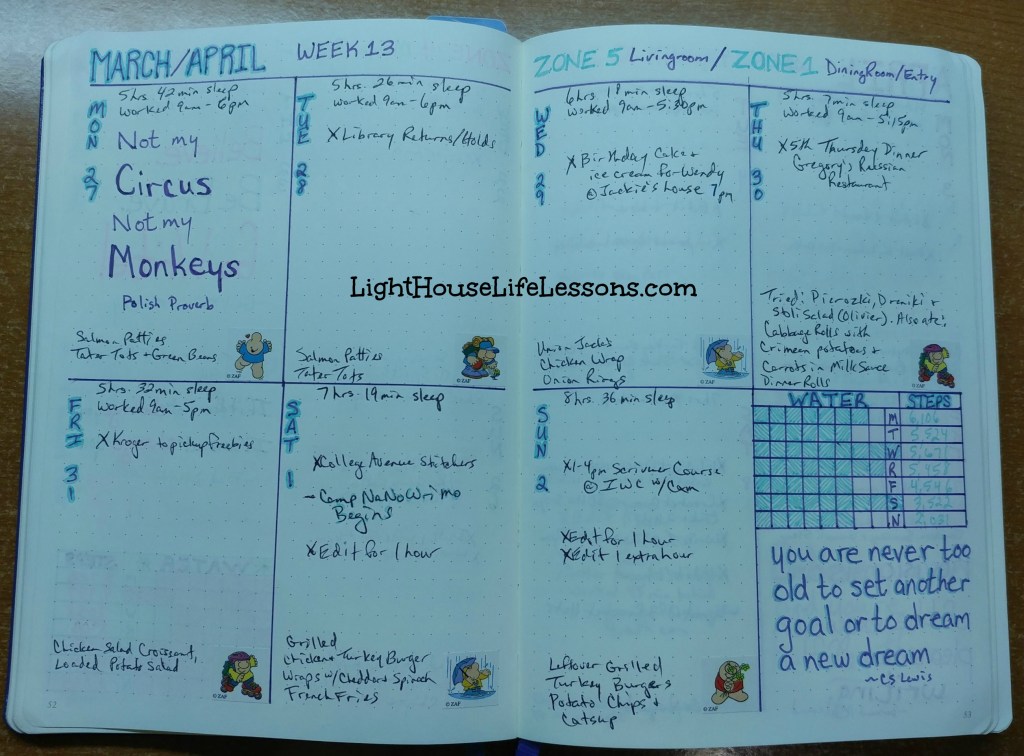 MARCH/APRIL WEEK 13
ZONE 5 Livingroom/ ZONE 1 DiningRoom/Entry
MON 27
5hrs. 42 min sleep
worked 9am-6pm
Not my
Circus
Not my
Monkeys
Polish Proverb
Salmon Patties
Tater Tots + Green Beans
© ZAF
TUE 28
5hrs. 26 min sleep
worked 9am-6pm
X Library Returns/Holds
Salmon Patties
Tater Tots
© ZAF
WED 29
6hrs. 18 min sleep
worked 9am-5:30pm
X Birthday Cake +
ice cream for Wendy
@ Jackie's house 7pm
Union Jack's
Chicken Wrap
Onion Rings
© ZAF
THU 30
5hrs 7 min sleep
worked 9am-5:15pm
X 5th Thursday Dinner
Gregory's Russian
Restaurant
Tried: Pierozki, Draniki +
Stoli Salad (Olivier). Also ate:
Cabbage Rolls with
Crimean potatoes +
Carrots in Milk Sauce
Dinner Rolls
© ZAF
LightHouseLifeLessons.com
FRI 31
5hrs. 32 min sleep
worked 9am-5pm
X Kroger to pickup freebies
Chicken Salad Croissant,
Loaded Potato Salad
© ZAF
52
SAT 1
7 hrs. 19 min sleep
X College Avenue Stitchers
- Camp NaNoWriMo
Begins
X Edit for 1 hour
Grilled
Chicken + Turkey Burger
Wraps w/ Cheddar + Spinach
French Fries
© ZAF
SUN 2
8 hrs. 36 min sleep
X 1-4pm Scrivener Course
@ IWC w/ Cam
X Edit for 1 hour
X Edit 1 extra hour
Leftover Grilled
Turkey Burgers
Potato Chips +
Catsup
© ZAF
WATER STEPS
M 6,106
T 5,524
W 5,671
R 5,458
F 4,546
S 3,522
N 2,031
you are never too
old to set another
goal or to dream
a new dream
~CS Lewis
53